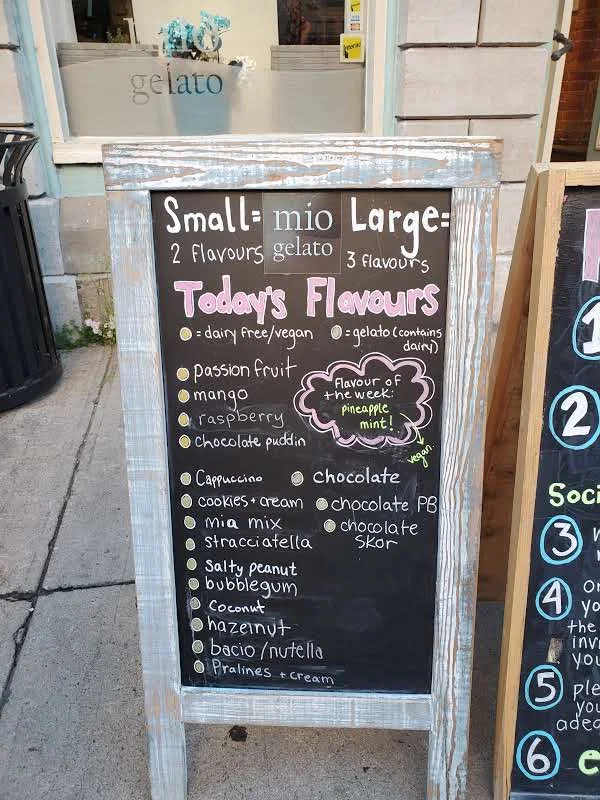 mio
gelato
Interac
Small=
mio
gelato
Large=
2 flavours
3 flavours
Today's Flavours
= dairy free/vegan
= gelato (contains
dairy)
passion fruit
mango
raspberry
chocolate puddin
Flavour of
the week:
pineapple
mint!
vegan
Cappuccino
Chocolate
cookies + cream
chocolate PB
mia mix
chocolate
skor
stracciatella
Salty peanut
bubblegum
Coconut
hazelnut
bacio/nutella
Pralines + cream
1
2
Soci
3
4
yo
the
inv
you
5
ple
you
adeq
6
e